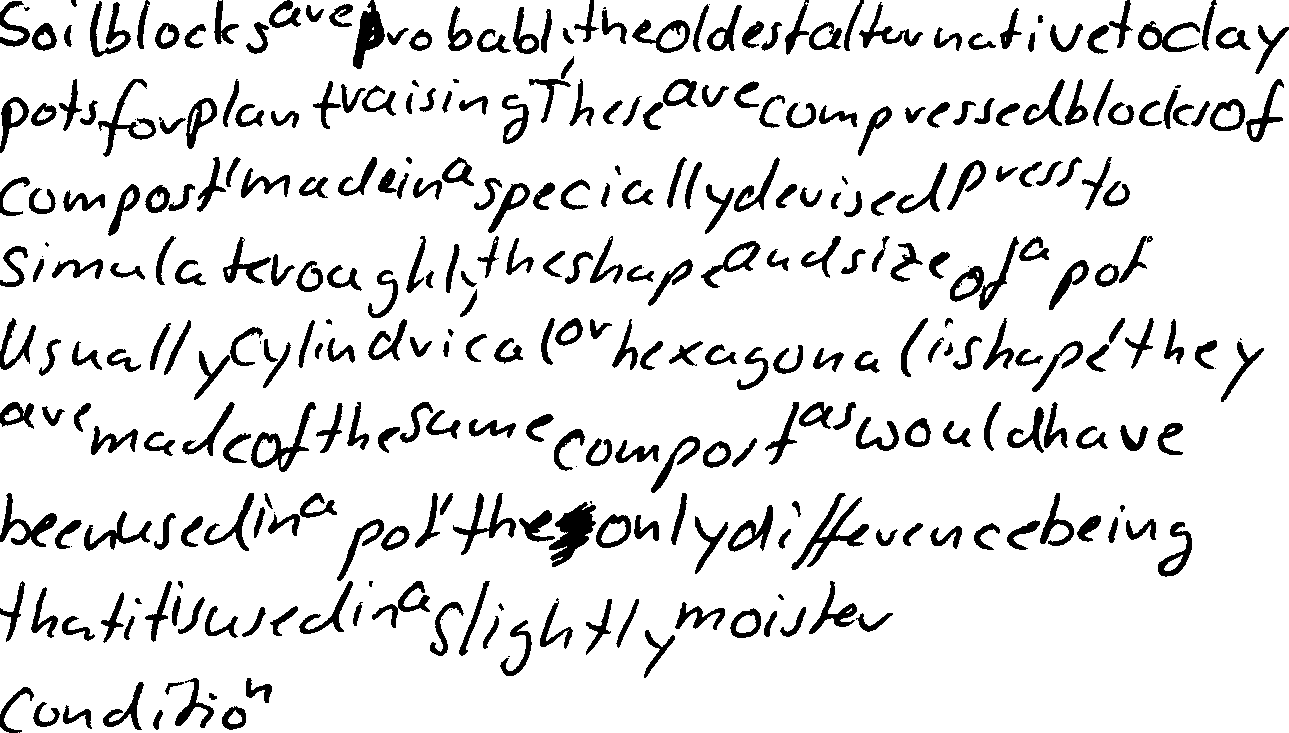 Soil blocks are probably the oldest alternative to clay
pots for plant raising These are compressed blocks of
compost, made in a specially devised press to
simulate roughly the shape and size of a pot
Usually cylindrical or hexagonal i shape, they
are made of the same compost as would have
been used in a pot, the only difference being
that it is used in a slightly moister
condition